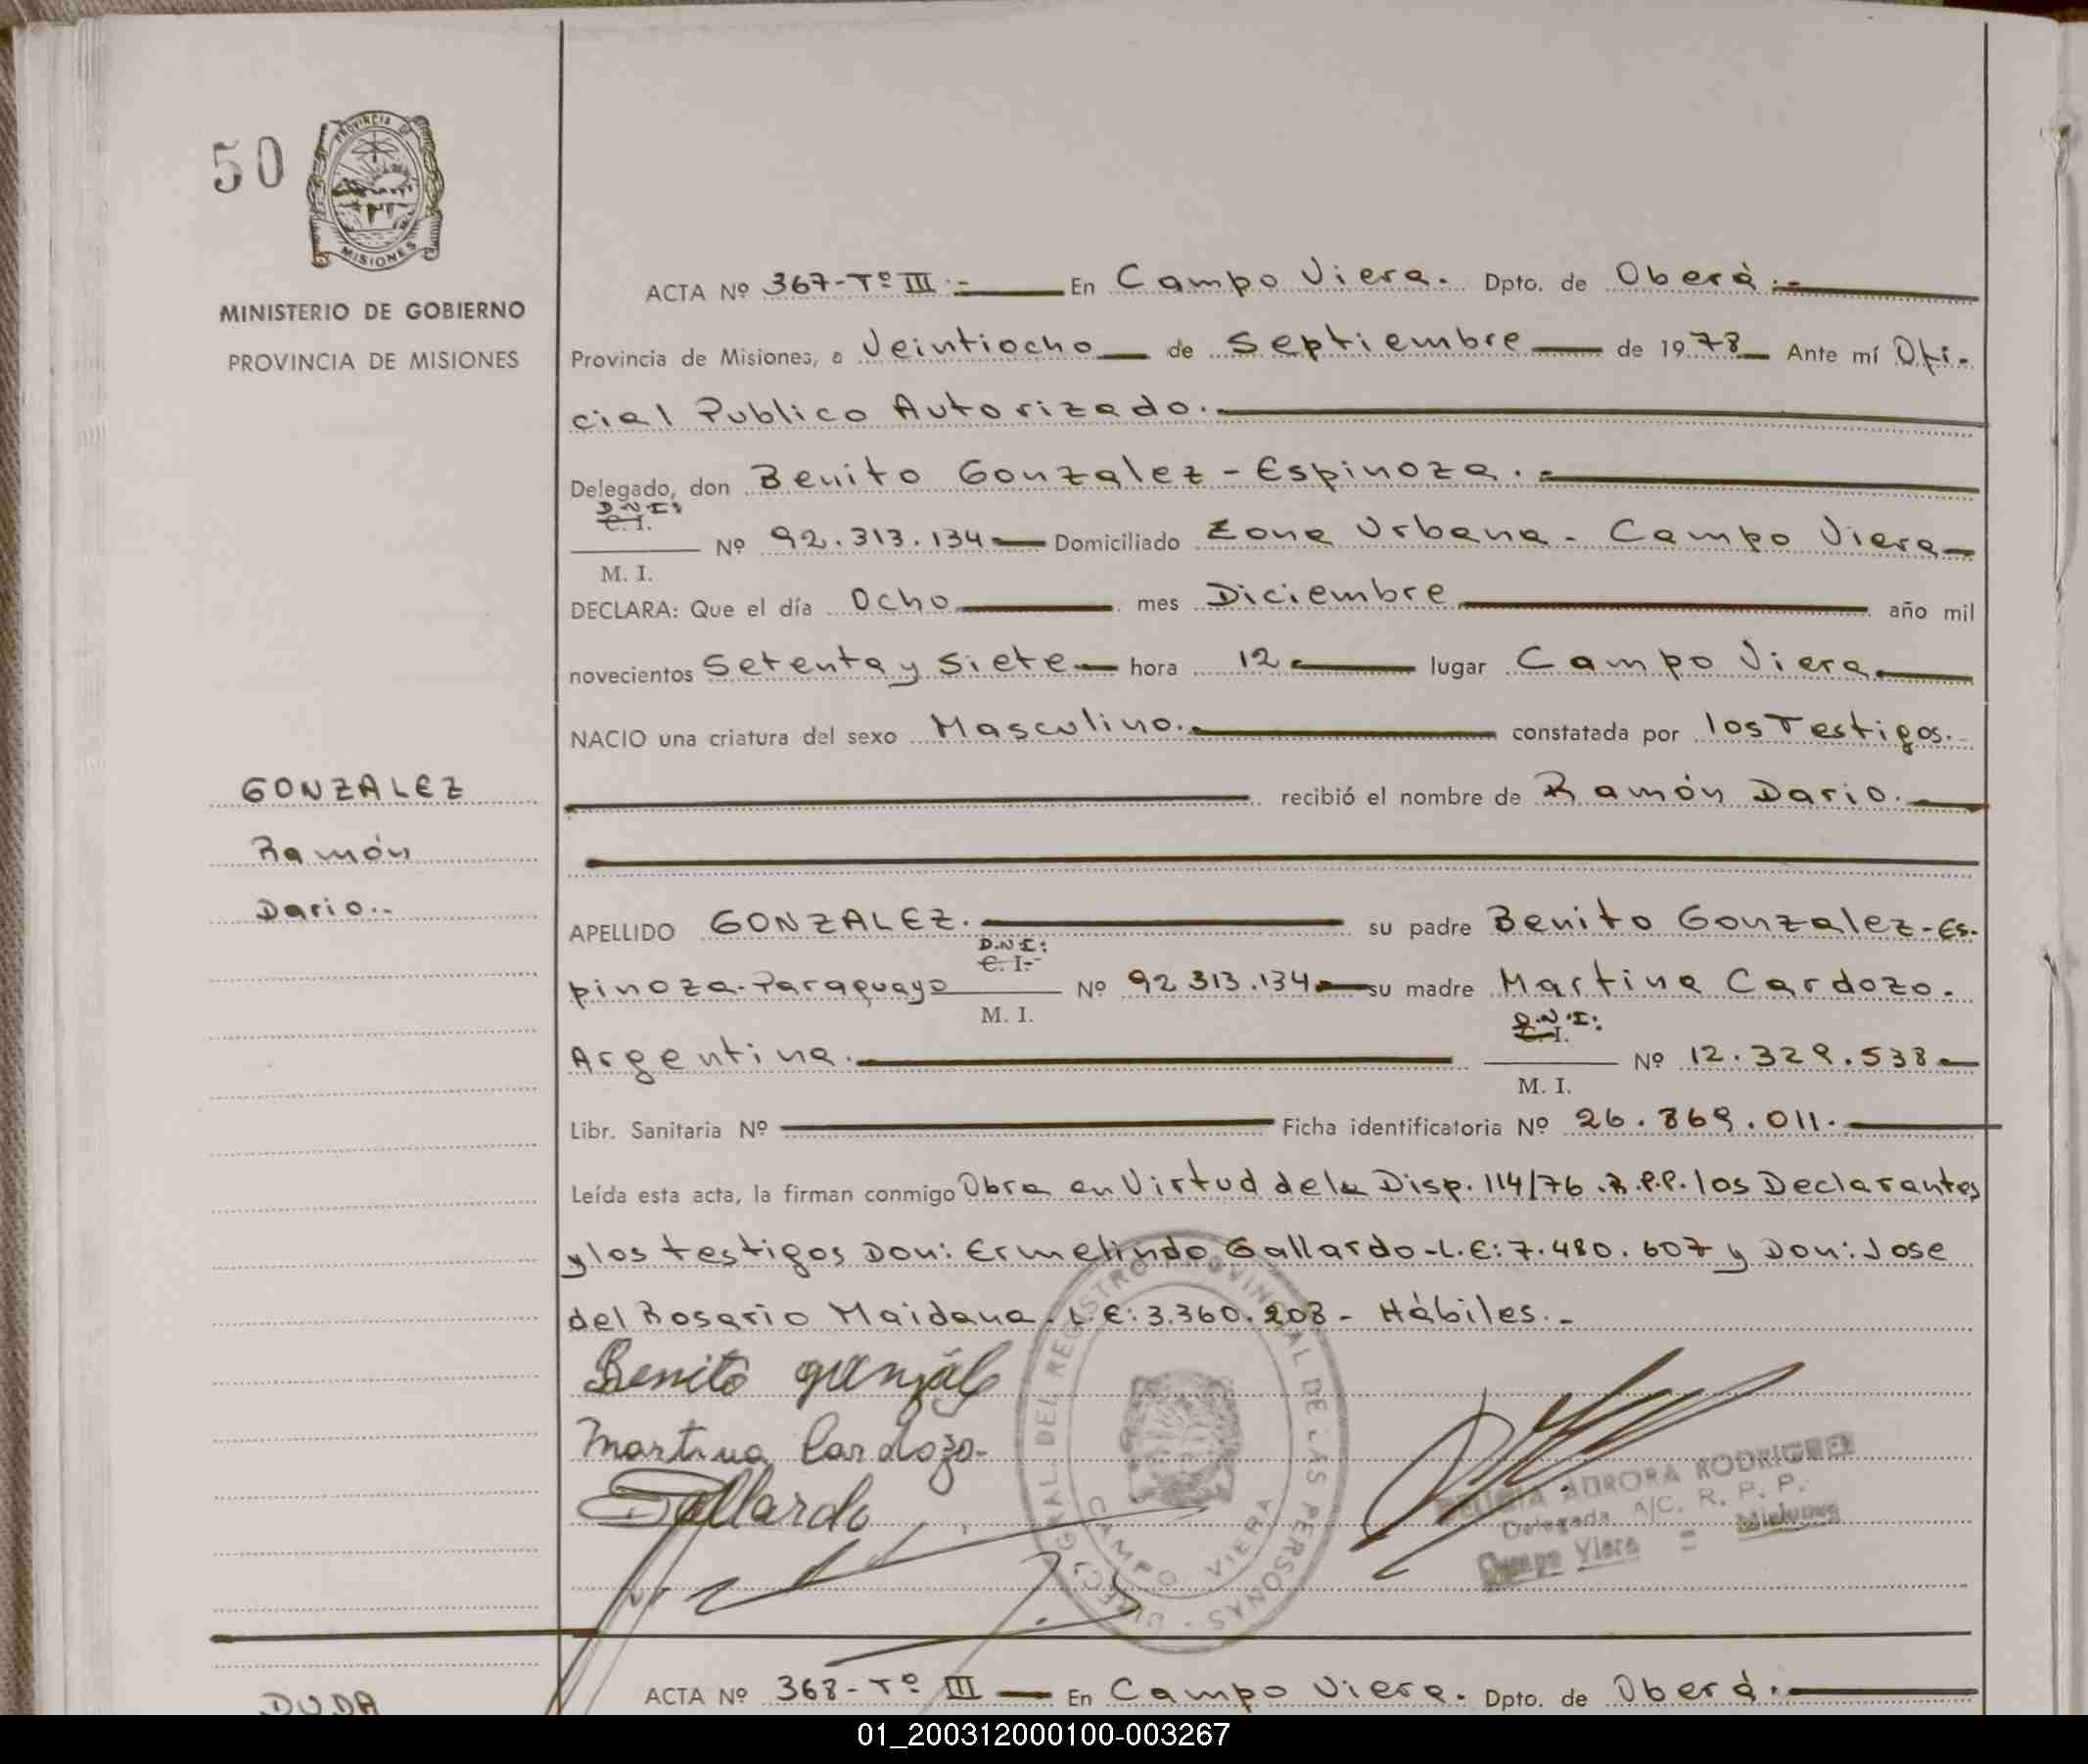 50
PROVINCIA DE
MISIONES
MINISTERIO DE GOBIERNO
PROVINCIA DE MISIONES
ACTA Nº 367-Tº III.- En Campo Viera. Dpto. de Oberá.-
Provincia de Misiones, a Veintiocho de Septiembre de 1978 Ante mí Ofi-
cial Publico Autorizado.
Delegado, don Benito Gonzalez-Espinoza.
D.N.I:
C. I.
Nº 92.313.134 Domiciliado Zona Urbana- Campo Viera
M. I.
DECLARA: Que el día Ocho mes Diciembre año mil
novecientos Setenta y Siete hora 12 lugar Campo Viera
NACIO una criatura del sexo Masculino. constatada por los Testigos.
GONZALEZ
recibió el nombre de Ramón Dario.
Ramón
Dario..
APELLIDO GONZALEZ. su padre Benito Gonzalez-Es-
D.N.I:
C. I.
pinoza-Paraguayo Nº 92.313.134 su madre Martina Cardozo.
M. I.
D.N.I:
C. I.
Argentina. Nº 12.329.538
M. I.
Libr. Sanitaria Nº Ficha identificatoria Nº 26.869.011.
Leída esta acta, la firman conmigo Obra en Virtud de la Disp. 114/76.R.P.P. los Declarantes
y los testigos Don: Ermelindo Gallardo-L.E:7.480.607 y Don: Jose
del Rosario Maidana. L.E:3.360.208- Hábiles.-
Benito
Martina Cardozo-
Gallardo
DIRECC. GRAL. DEL REGISTRO PROVINCIAL DE LAS PERSONAS -
CAMPO VIERA
AURORA RODRIGUEZ
Delegada A/C. R. P. P.
Campo Viera = Misiones
DUDA
ACTA Nº 368-Tº III En Campo Viera. Dpto. de Oberá.
01_200312000100-003267